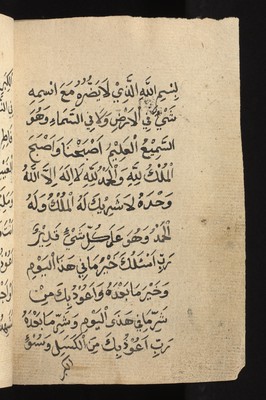 بِسْمِ اللَّهِ الَّذِي لَا يَضُرُّ مَعَ اسْمِهِ
شَيْءٌ فِي الْأَرْضِ وَلَا فِي السَّمَاءِ وَهُوَ
السَّمِيعُ الْعَلِيمُ أَصْبَحْنَا وَأَصْبَحَ
الْمُلْكُ لِلَّهِ وَالْحَمْدُ لِلَّهِ لَا إِلَهَ إِلَّا اللَّهُ
وَحْدَهُ لَا شَرِيكَ لَهُ الْمُلْكُ وَلَهُ
الْحَمْدُ وَهُوَ عَلَى كُلِّ شَيْءٍ قَدِيرٌ
رَبِّ أَسْئَلُكَ خَيْرَ مَا فِي هَذَا الْيَوْمِ
وَخَيْرَ مَا بَعْدَهُ وَأَعُوذُ بِكَ مِنْ
شَرِّ مَا فِي هَذَى الْيَوْمِ وَشَرِّ مَا بَعْدَهُ
رَبِّ أَعُوذُ بِكَ مِنَ الْكَسَلِ وَسُوْءِ
الكبر